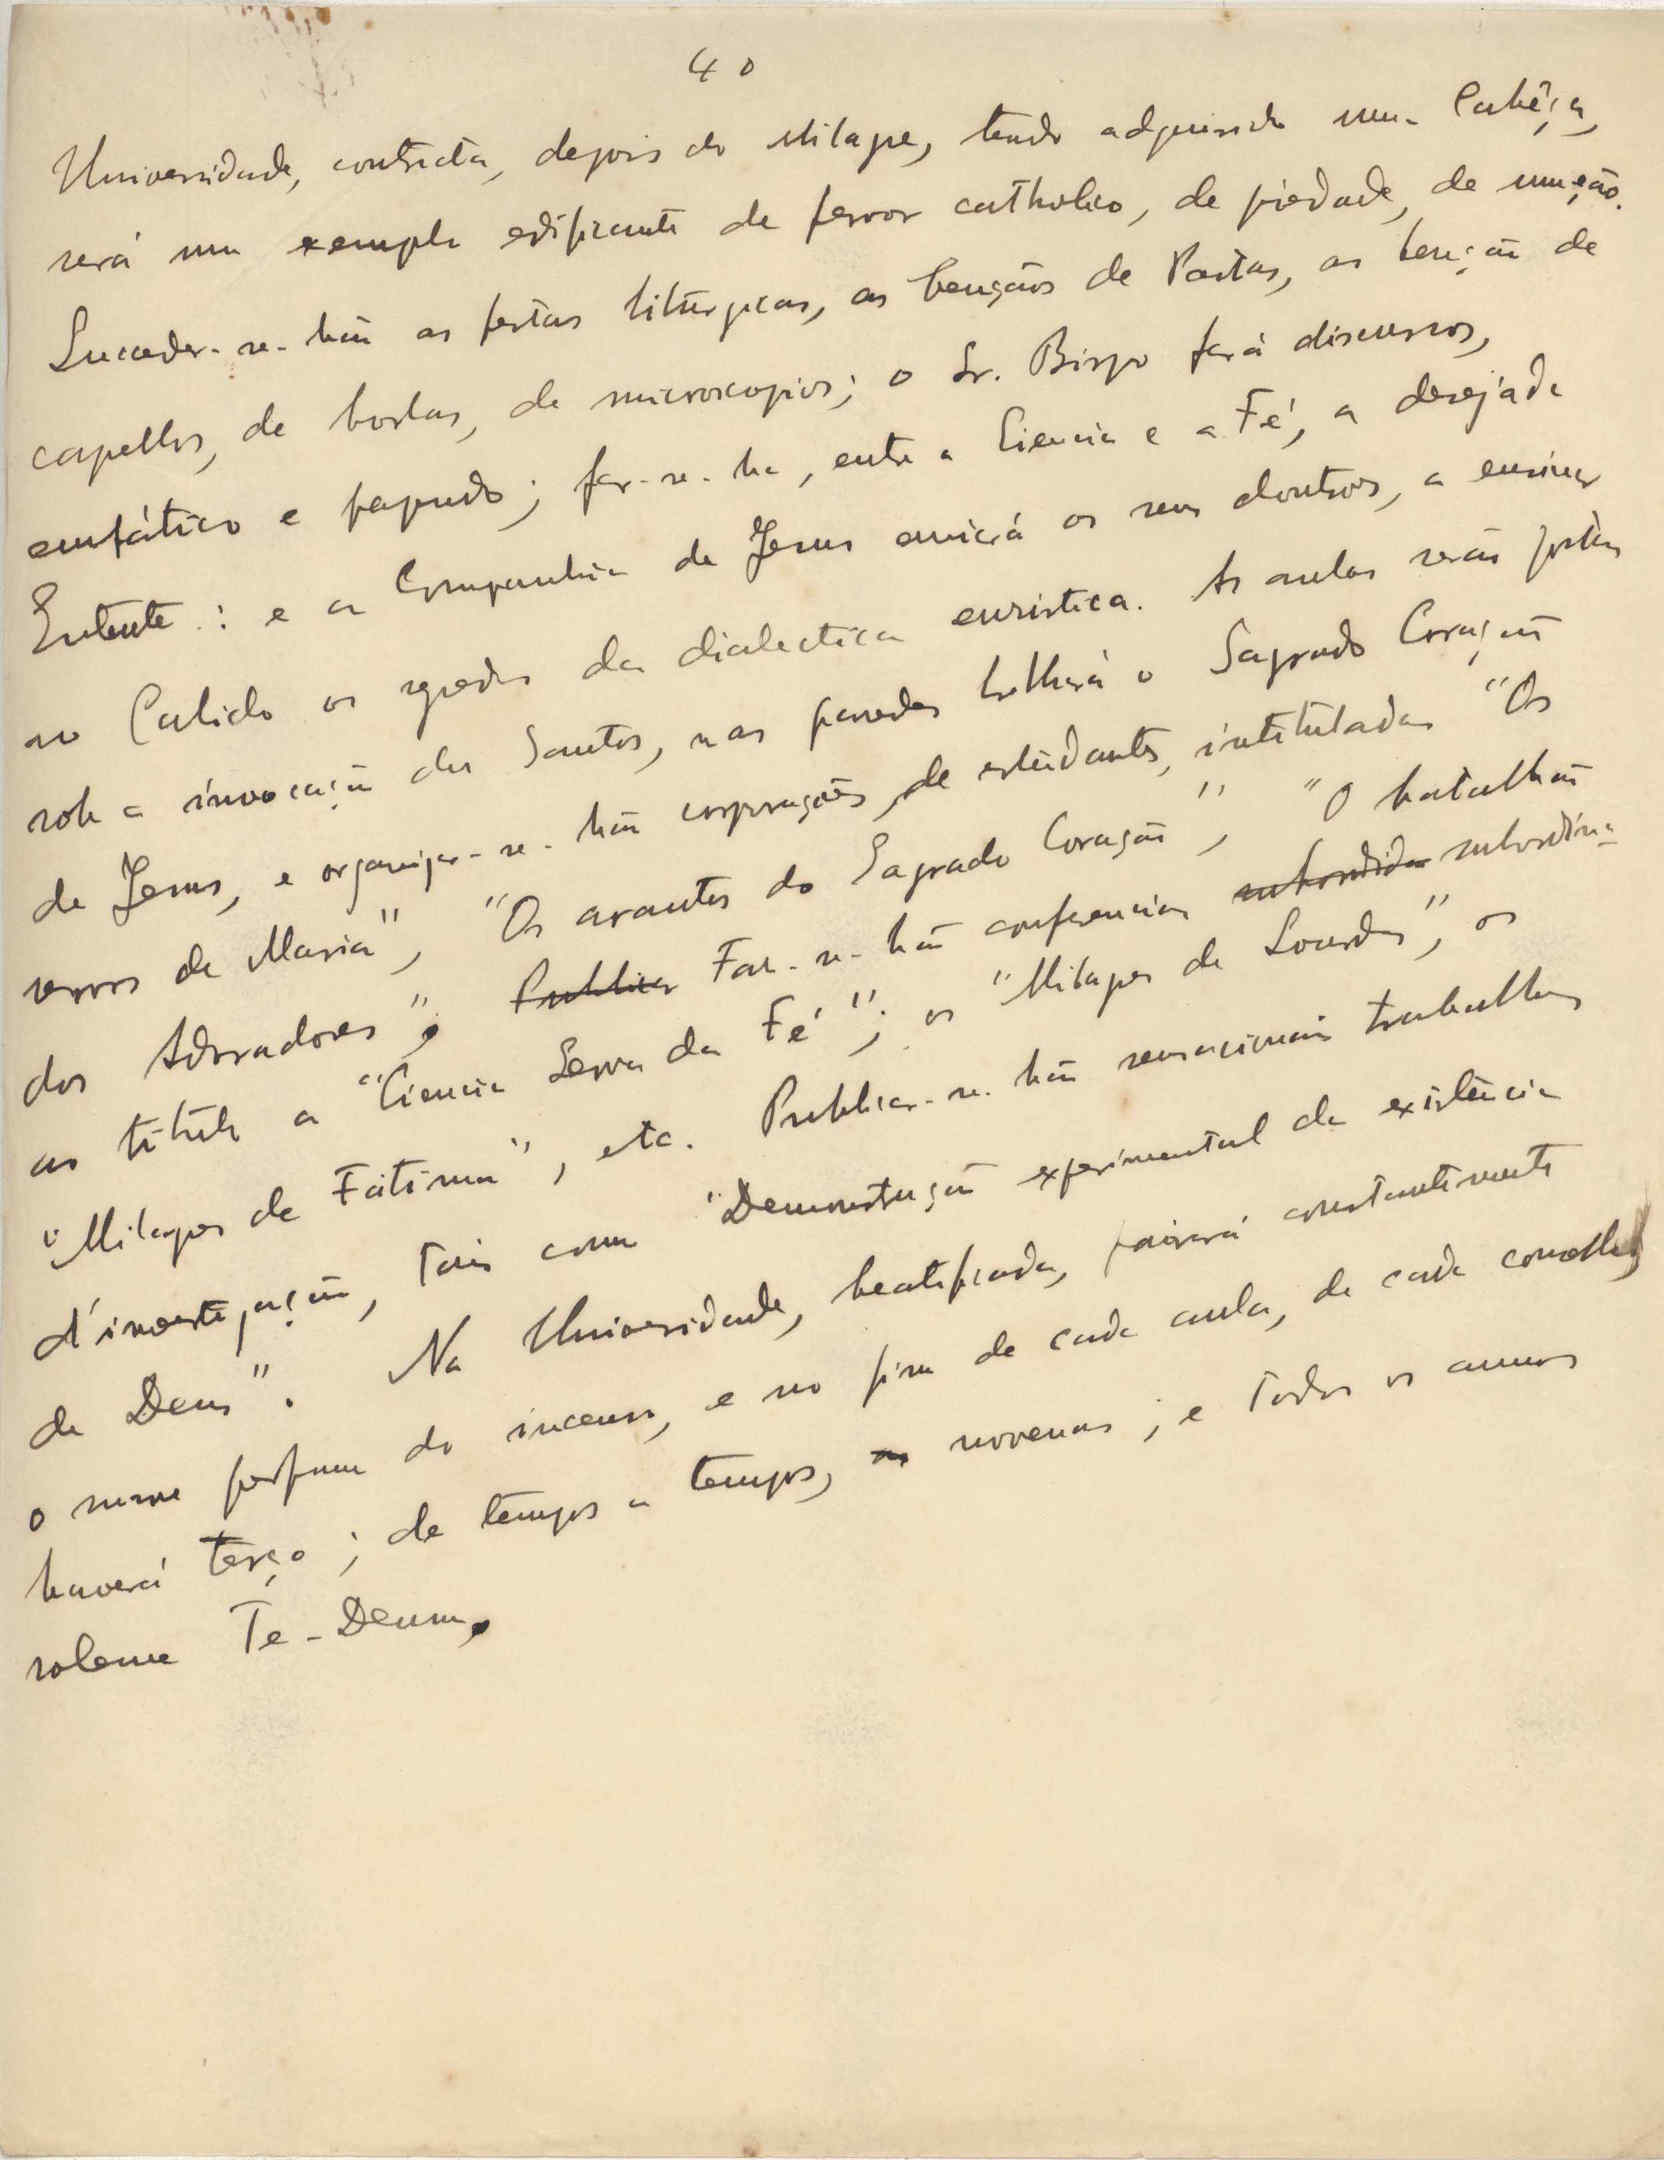 40
Universidade, contricta, depois do Milagre, tendo adquirido uma Cabêça,
será um exemplo edificante de fervor catholico, de piedade, de uncção.
Succeder-se-hão as festas litúrgicas, as bençãos de Pastas, as benção de
capellos, de borlas, de microscopios; o Sr. Bispo fará discursos,
emfático e papudo; far-se-ha, entre a Ciencia e a Fé, a desejada
Entente: e a Companhia de Jesus enviará os seus doutores, a ensinar
no Cabido os segredos da dialectica euristica. As aulas serão postas
sob a invocação dos Santos, nas paredes brilhará o Sagrado Coração
de Jesus, e organizar-se-hão corporações de estudantes, intituladas "Os
servos de Maria", "Os arautos do Sagrado Coração", "O batalhão
dos Adoradores". Publicar Far-se-hão conferencias subordina-
as titulo a "Ciencia Serva da Fé"; os "Milagres de Lourdes", os
"Milagres de Fátima", etc. Publicar-se-hão sensacionais trabalhos
d'investigação, tais como "Demonstração experimental da existência
de Deus". Na Universidade, beatificada, pairará constantemente
o suave perfume do incenso, e no fim de cada aula, de cada conselho,
haverá terço; de tempos a tempos, as novenas; e todos os annos
solemne Te-Deum.